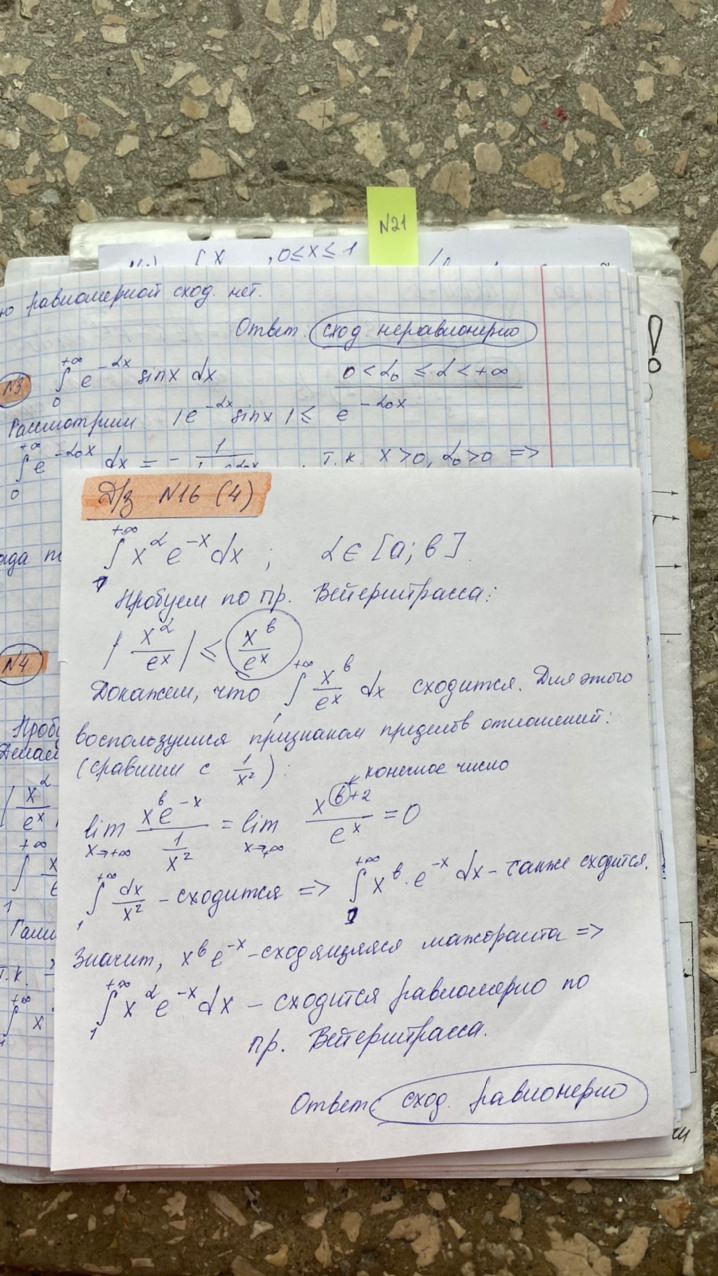 N21
, 0≤x≤1
!
равномерной сход. нет.
Ответ: сход. неравномерно
N3 ∫₀^{+∞} e^{-αx} sinx dx 0 < α₀ ≤ α < +∞
Рассмотрим |e^{-αx} sinx| ≤ e^{-α₀x}
∫₀^{+∞} e^{-α₀x} dx = - 1 т.к. x>0, α₀>0 =>
N4
Д/з N16 (4)
∫₁^{+∞} x^α e^{-x} dx ; α ∈ [a; b].
Пробуем по пр. Вейерштрасса:
|x^α/e^x| ≤ x^b/e^x
Докажем, что ∫₁^{+∞} x^b/e^x dx сходится. Для этого
воспользуемся признаком пределов отношений:
(сравним с 1/x²):
конечное число
lim_{x→+∞} x^b e^{-x}/(1/x²) = lim_{x→∞} x^{b+2}/e^x = 0
∫₁^{+∞} dx/x² - сходится => ∫₁^{+∞} x^b · e^{-x} dx - также сходится.
Значит, x^b e^{-x} - сходящаяся мажоранта =>
∫₁^{+∞} x^α e^{-x} dx - сходится равномерно по
пр. Вейерштрасса.
Ответ: сход. равномерно